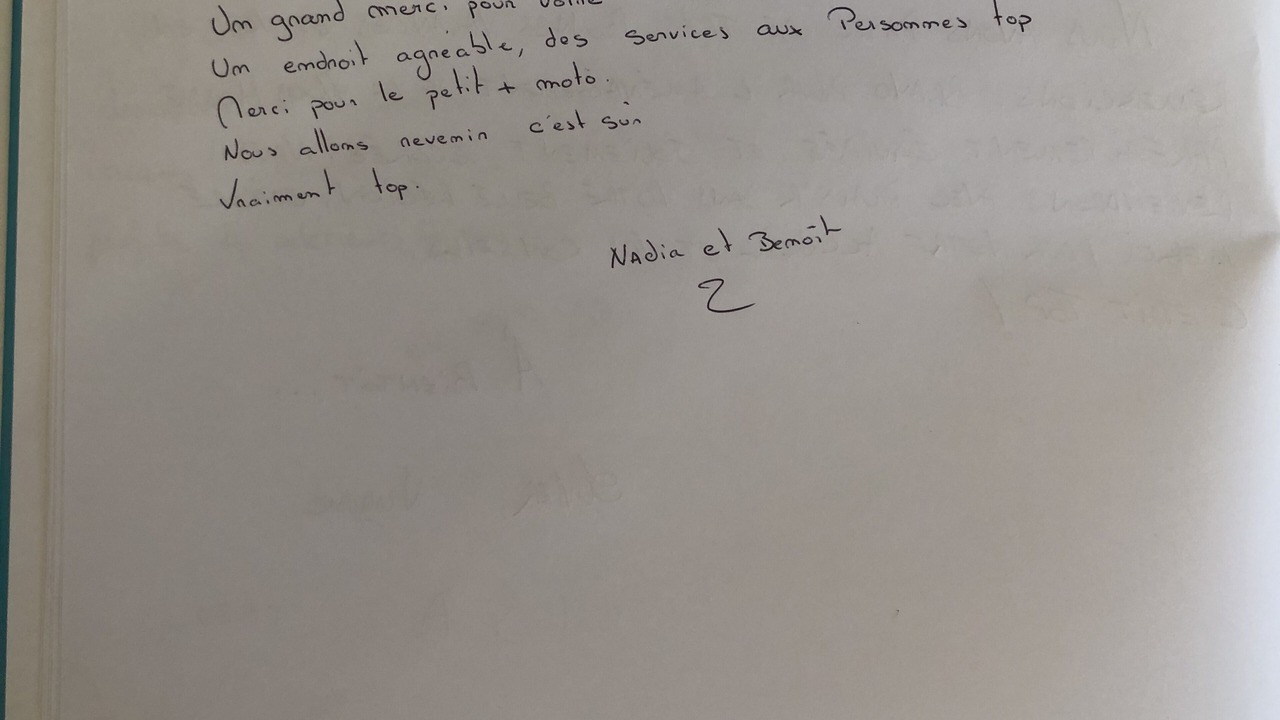 Un grand merci pour votre
Un endroit agréable, des services aux Personnes top
Merci pour le petit + moto.
Nous allons revenir c'est sûr
Vraiment top.
Nadia et Benoît